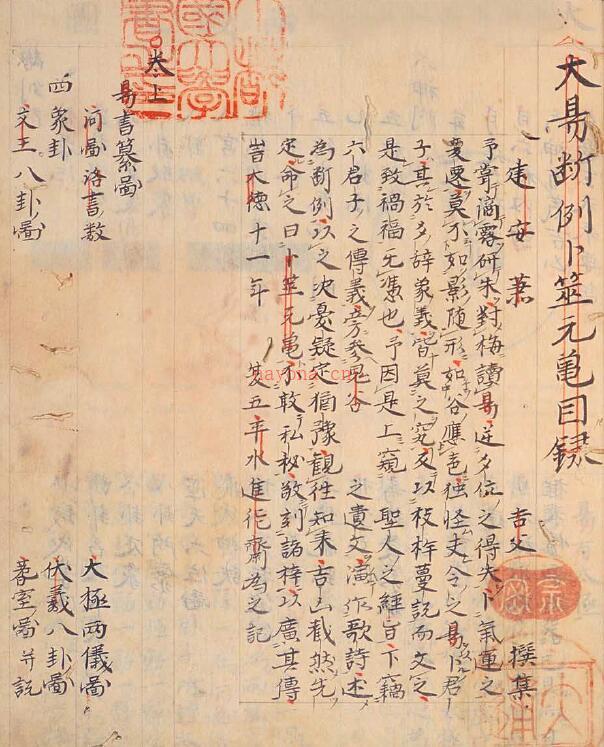 大易断例卜筮元亀目録
建安 蕭 吉父 撰集
予嘗滴露研朱對梅讀易逆爻位之得失卜氣運之
變遷莫不如影随形如谷應声独怪夫今之易卜君
子其於爻辞象義皆莫之究反以枝幹蔓説而文之
是致禍福无憑也予因是上窺 聖人之經旨下竊
六君子之傳義旁参鬼谷 之遺文演作歌詩述
為断例以之决憂疑定猶豫観徃知来吉凶截然先
定命之曰卜筮元亀不敢私秘敬刻諸梓以廣其傳
旹大德十一年 平水進德齋為之記
卷上
易書纂圖
河圖洛書数 大極两儀圖
四象卦 伏羲八卦圖
文王八卦圖 蓍室圖并説